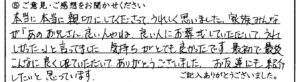 ⑤ご意見・ご感想をお聞かせください
本当に本当に親切にしてくださって、うれしく思いました。家族みんな
で「あのお兄さん、良い人やね。良い人にお葬式していただいて、うれ
しかったね」と言ってました。気持ちがとても良かったです。最初で最後
こんなに良く導いていただいてありがとうございました。お友達にも紹介
したいと思っています。
ご記入ありがとうございました。